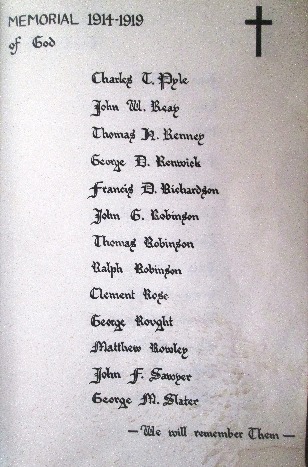 MEMORIAL 1914-1919
of God
Charles T. Pyle
John W. Reay
Thomas H. Renney
George D. Renwick
Francis D. Richardson
John G. Robinson
Thomas Robinson
Ralph Robinson
Clement Rose
George Rought
Matthew Rowley
John F. Sawyer
George M. Slater
— We will remember Them —